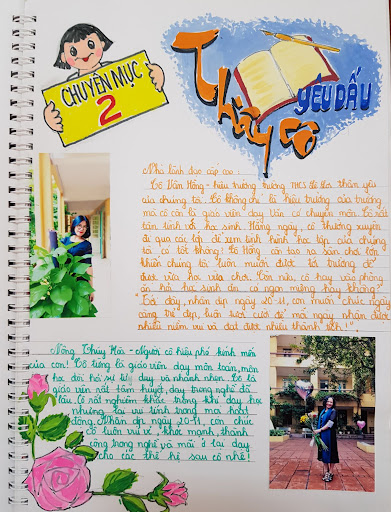 CHUYÊN MỤC
2
Thầy cô
YÊU DẤU
Nhà lãnh đạo cấp cao...
Cô Vân Hồng - hiệu trưởng trường THCS thân yêu
của chúng tôi. Cô không chỉ là hiệu trưởng của trường
mà cô còn là giáo viên dạy Văn có chuyên môn. Cô rất
tận tình với học sinh. Hằng ngày, cô thường xuyên
đi qua các lớp để xem tình hình học tập của chúng
tôi có tốt không! Cô Hồng còn tạo ra sân chơi lớn
khiến chúng tôi luôn muốn được tới trường để
được vừa học vừa chơi. Còn nữa, cô hay vào phòng
ăn hỏi học sinh ăn có ngon miệng hay không?
"Cô ơi, nhân dịp ngày 20-11, con muốn chúc ngày
càng trẻ đẹp, luôn tươi cười để mỗi ngày nhận được
nhiều niềm vui và đạt được nhiều thành tích!"
Nông Thúy Hòa - Người cô hiệu phó kính mến
của con! Cô từng là giáo viên dạy môn toán, môn
học đòi hỏi sự tư duy và nhanh nhẹn. Cô là
giáo viên rất tâm huyết, dạy trong nghề đã
lâu. Cô rất nghiêm khắc trong khi dạy học
nhưng lại vui tính trong mọi hoạt
động. Nhân dịp ngày 20-11, con chúc
cô luôn vui vẻ, khỏe mạnh, thành
công trong nghề và mãi ở lại dạy
cho các thế hệ sau cô nhé!